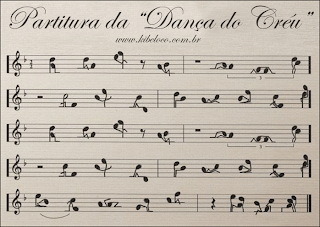 Partitura da "Dança do Créu"
www.kibeloco.com.br
3
3